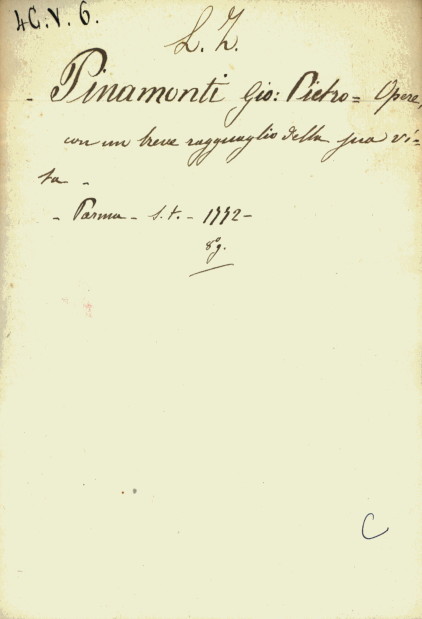 4C.V.6.
L. Z.
- Pinamonti Gio: Pietro = Opere,
con un breve ragguaglio della sua vi=
ta -
- Parma - s. t. - 1772 -
8º g.
C